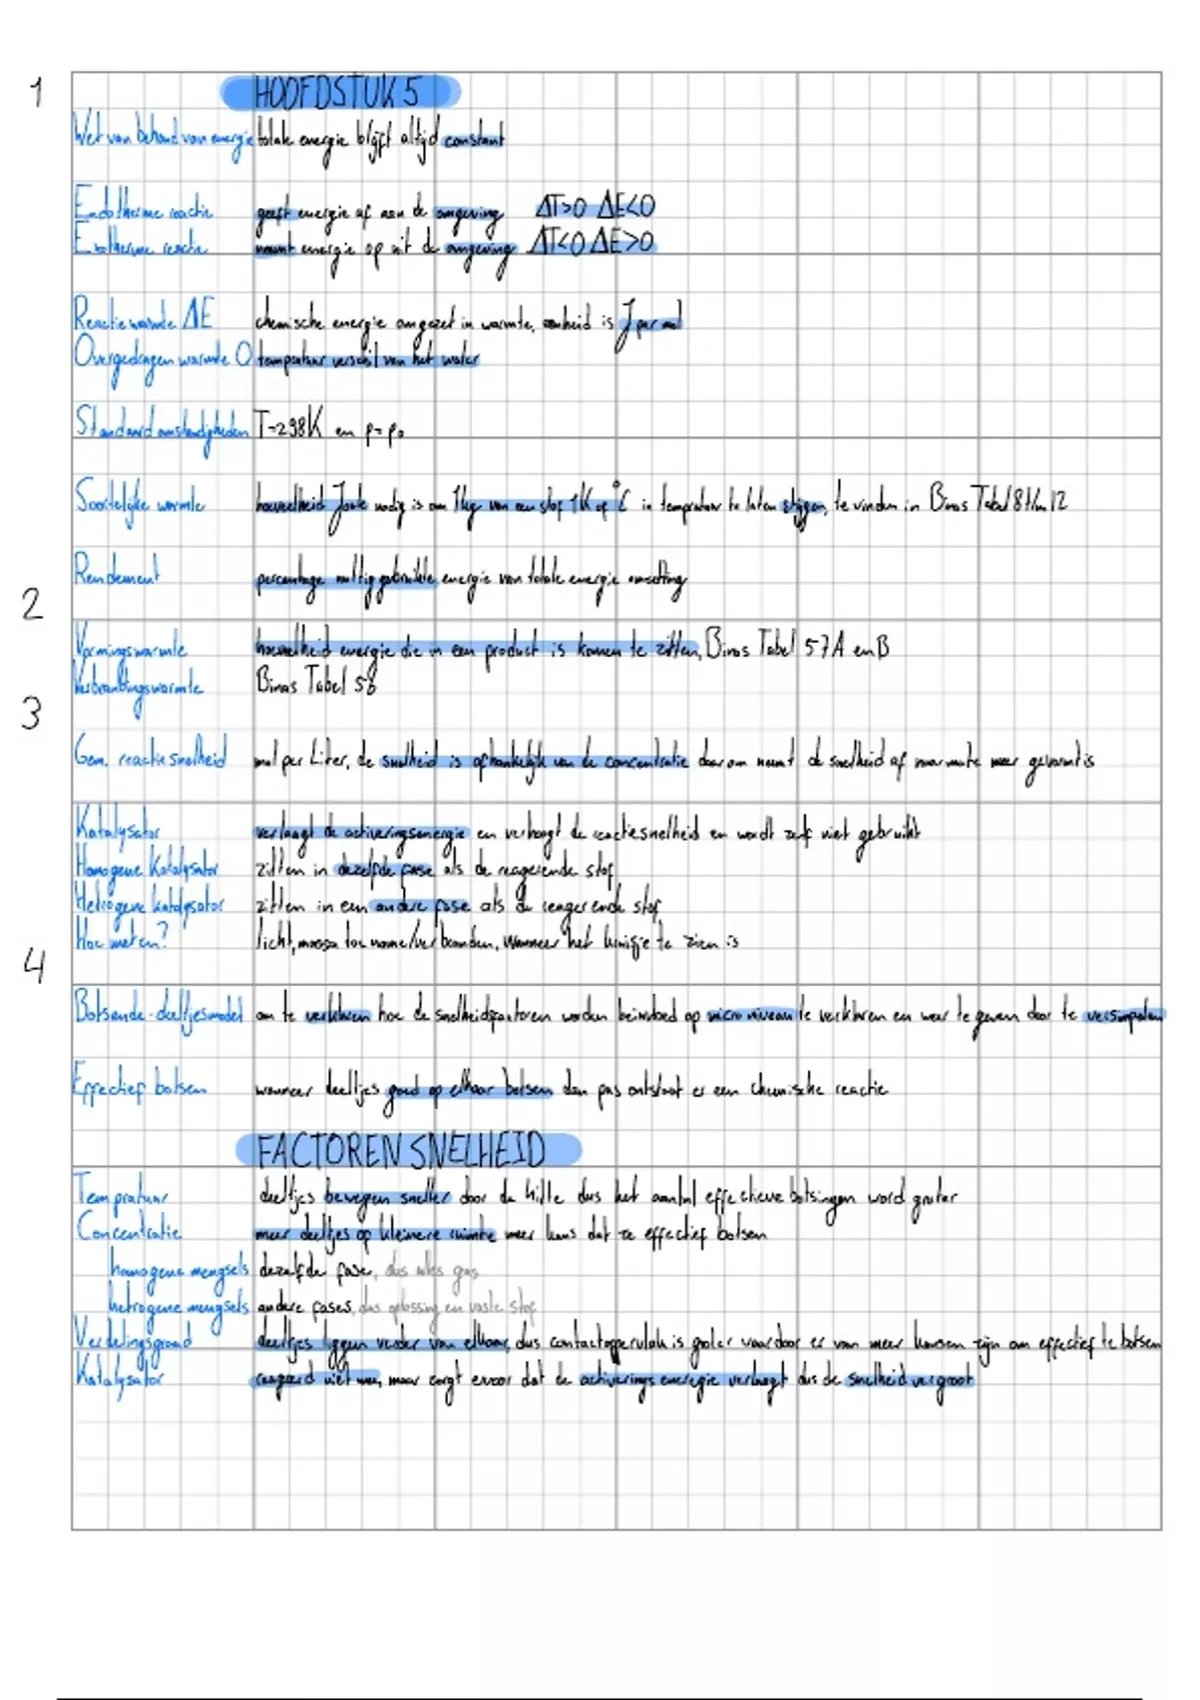 1
HOOFDSTUK 5
Wet van behoud van energie totale energie blijft altijd constant
Endotherme reactie geeft energie af aan de omgeving ΔT>0 ΔE<0
Exotherme reactie neemt energie op uit de omgeving ΔT<0 ΔE>0
Reactiewarmte ΔE chemische energie omgezet in warmte, eenheid is J per mol
Overgedragen warmte Q tempratuur verschil van het water
Standaard omstandigheden T=298K en p=p₀
Soortelijke warmte hoeveelheid Joule nodig is om 1kg van een stof 1K of °C in tempratuur te laten stijgen, te vinden in Binas Tabel 8 t/m 12
Rendement percentage nuttig gebruikte energie van totale energie omzetting
2
Vormingswarmte hoeveelheid energie die in een product is komen te zitten, Binas Tabel 57A en B
Verbrandingswarmte Binas Tabel 56
3
Gem. reactiesnelheid mol per Liter, de snelheid is afhankelijk van de concentratie daarom neemt de snelheid af naarmate meer gevormt is
Katalysator verlaagt de activeringsenergie en verhoogt de reactiesnelheid en wordt zelf niet gebruikt
Homogene Katalysator zitten in dezelfde fase als de reagerende stof
Hetrogene katalysator zitten in een andere fase als de reagerende stof
Hoe meten? licht, massa toename/verbranden, wanneer het kruisje te zien is
4
Botsende-deeltjesmodel om te verklaren hoe de snelheidsfactoren worden beinvloed op micro niveau te verklaren en weer te geven door te versimpelen
Effectief botsen wanneer deeltjes goed op elkaar botsen dan pas ontstaat er een chemische reactie
FACTOREN SNELHEID
Tempratuur deeltjes bewegen sneller door de hitte dus het aantal effectieve botsingen word groter
Concentratie meer deeltjes op kleinere ruimte meer kans dat ze effectief botsen
homogene mengsels dezelfde fase, dus alles gas
hetrogene mengsels andere fases, dus oplossing en vaste stof
Verdelingsgraad deeltjes liggen verder van elkaar, dus contactoppervlak is groter waardoor er van meer kansen zijn om effectief te botsen
Katalysator reageerd niet mee, maar zorgt ervoor dat de activerings energie verlaagt dus de snelheid vergroot